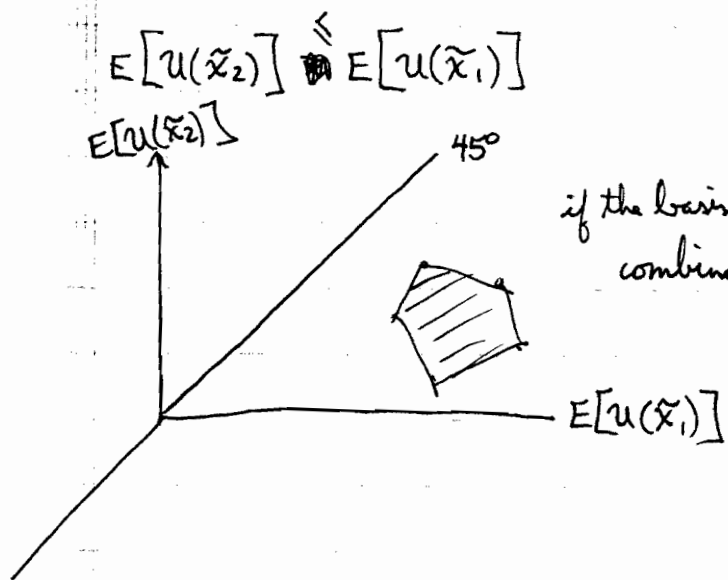 E[u(x̃₂)] ≤ E[u(x̃₁)]
E[u(x̃₂)]
45°
if the basis
combine
E[u(x̃₁)]